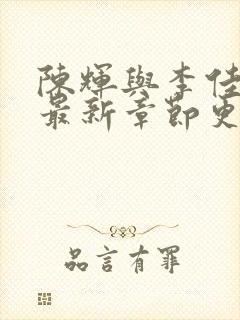 陳輝與李佳
最新章節更
品言有罪